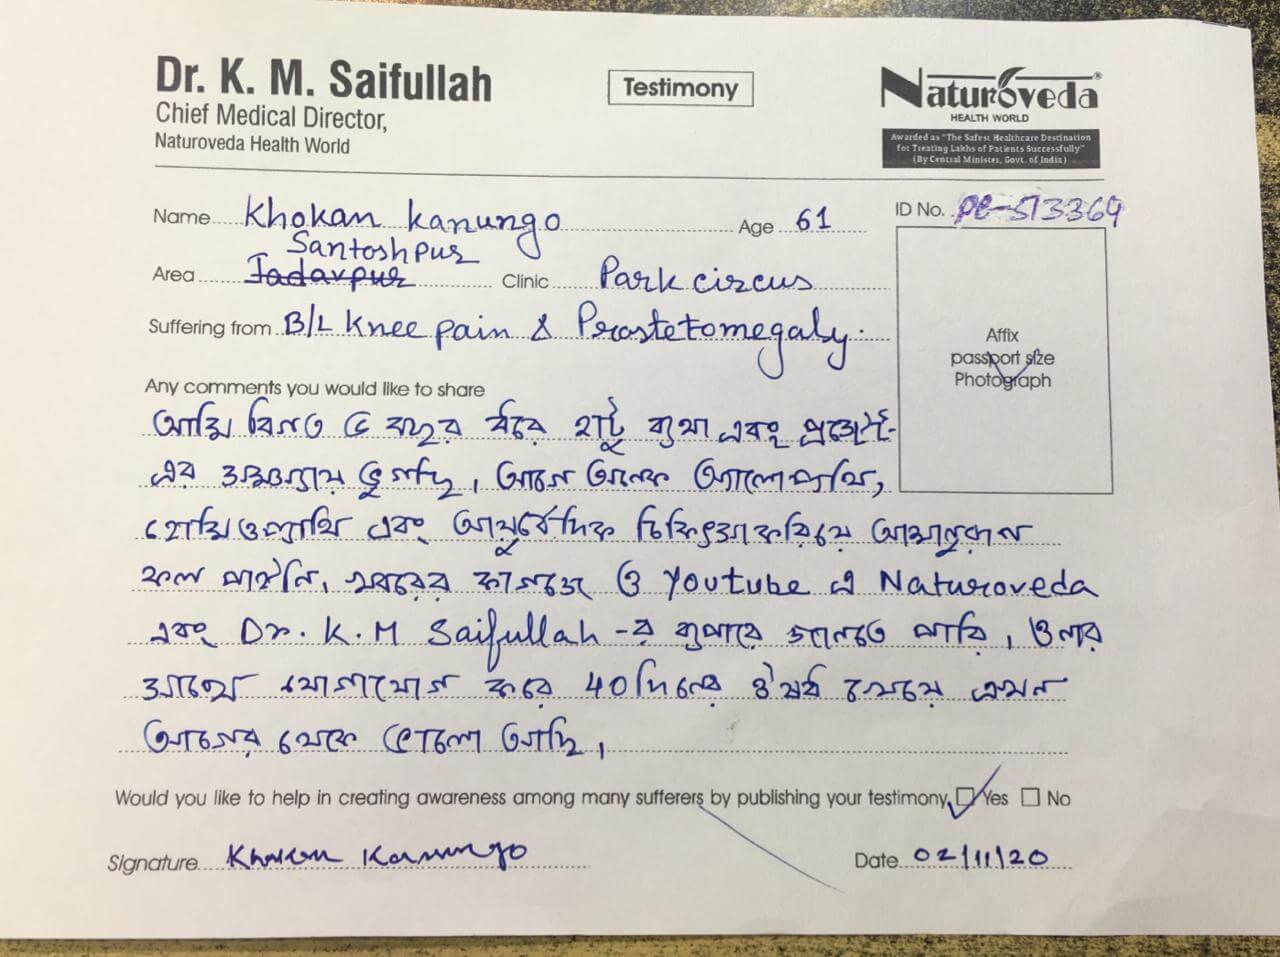 Dr. K. M. Saifullah
Chief Medical Director,
Naturoveda Health World
Testimony
Naturoveda®
HEALTH WORLD
Awarded as "The Safest Healthcare Destination
for Treating Lakhs of Patients Successfully"
(By Central Minister, Govt. of India)
Name Khokan Kanungo Age 61 ID No. PC-513369
Santoshpur
Area Jadavpur Clinic Park circus
Suffering from B/L Knee pain & Prostetomegaly.
Affix
passport size
Photograph
Any comments you would like to share
আমি বিগত ৫ বছর ধরে হাটু ব্যথা এবং প্রস্টেট-
এর সমস্যায় ভুগছি, আগে অনেক অ্যালোপ্যাথি,
হোমিওপ্যাথি এবং আয়ুর্বেদিক চিকিৎসা করিয়ে
ফল পাইনি, খবরের কাগজে ও Youtube এ Naturoveda
এবং Dr. K. M Saifullah -র ব্যপারে জানতে পারি, ওনার
সাথে যোগাযোগ করে 40 দিনের ঔষধ খেয়ে এখন
আগের থেকে ভালো আছি,
Would you like to help in creating awareness among many sufferers by publishing your testimony, Yes No
Signature Khokan Kanungo Date 02/11/20